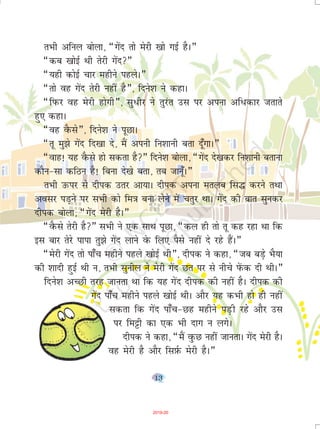 तभी अनिल बोला, “गेंद तो मेरी खो गई है।”
“कब खोई थी तेरी गेंद?”
“यही कोई चार महीने पहले।”
“तो वह गेंद तेरी नहीं है”, दिनेश ने कहा।
“फिर वह मेरी होगी”, सुधीर ने तुरंत उस पर अपना अधिकार जताते
हुए कहा।
“वह कैसे”, दिनेश ने पूछा।
“तू मुझे गेंद दिखा दे, मैं अपनी निशानी बता दूँगा।”
“वाह! यह कैसे हो सकता है?” दिनेश बोला, “गेंद देखकर निशानी बताना
कौन-सा कठिन है! बिना देखे बता, तब जानूँ।”
तभी ऊपर से दीपक उतर आया। दीपक अपना मतलब सिद्ध करने तथा
अवसर पड़ने पर सभी को मित्र बना लेने में चतुर था। गेंद की बात सुनकर
दीपक बोला, “गेंद मेरी है।”
“कैसे तेरी है?” सभी ने एक साथ पूछा, “कल ही तो तू कह रहा था कि
इस बार तेरे पापा तुझे गेंद लाने के लिए पैसे नहीं दे रहे हैं।”
“मेरी गेंद तो पाँच महीने पहले खोई थी”, दीपक ने कहा, “जब बड़े भैया
की शादी हुई थी न, तभी सुनील ने मेरी गेंद छत पर से नीचे फेंक दी थी।”
दिनेश अच्छी तरह जानता था कि यह गेंद दीपक की नहीं है। दीपक की
गेंद पाँच महीने पहले खोई थी। और यह कभी हो ही नहीं
सकता कि गेंद पाँच-छह महीने पड़ी रहे और उस
पर मिट्टी का एक भी दाग न लगे।
दीपक ने कहा, “मैं कुछ नहीं जानता। गेंद मेरी है।
वह मेरी है और सिर्फ़ मेरी है।”
13
2019-20